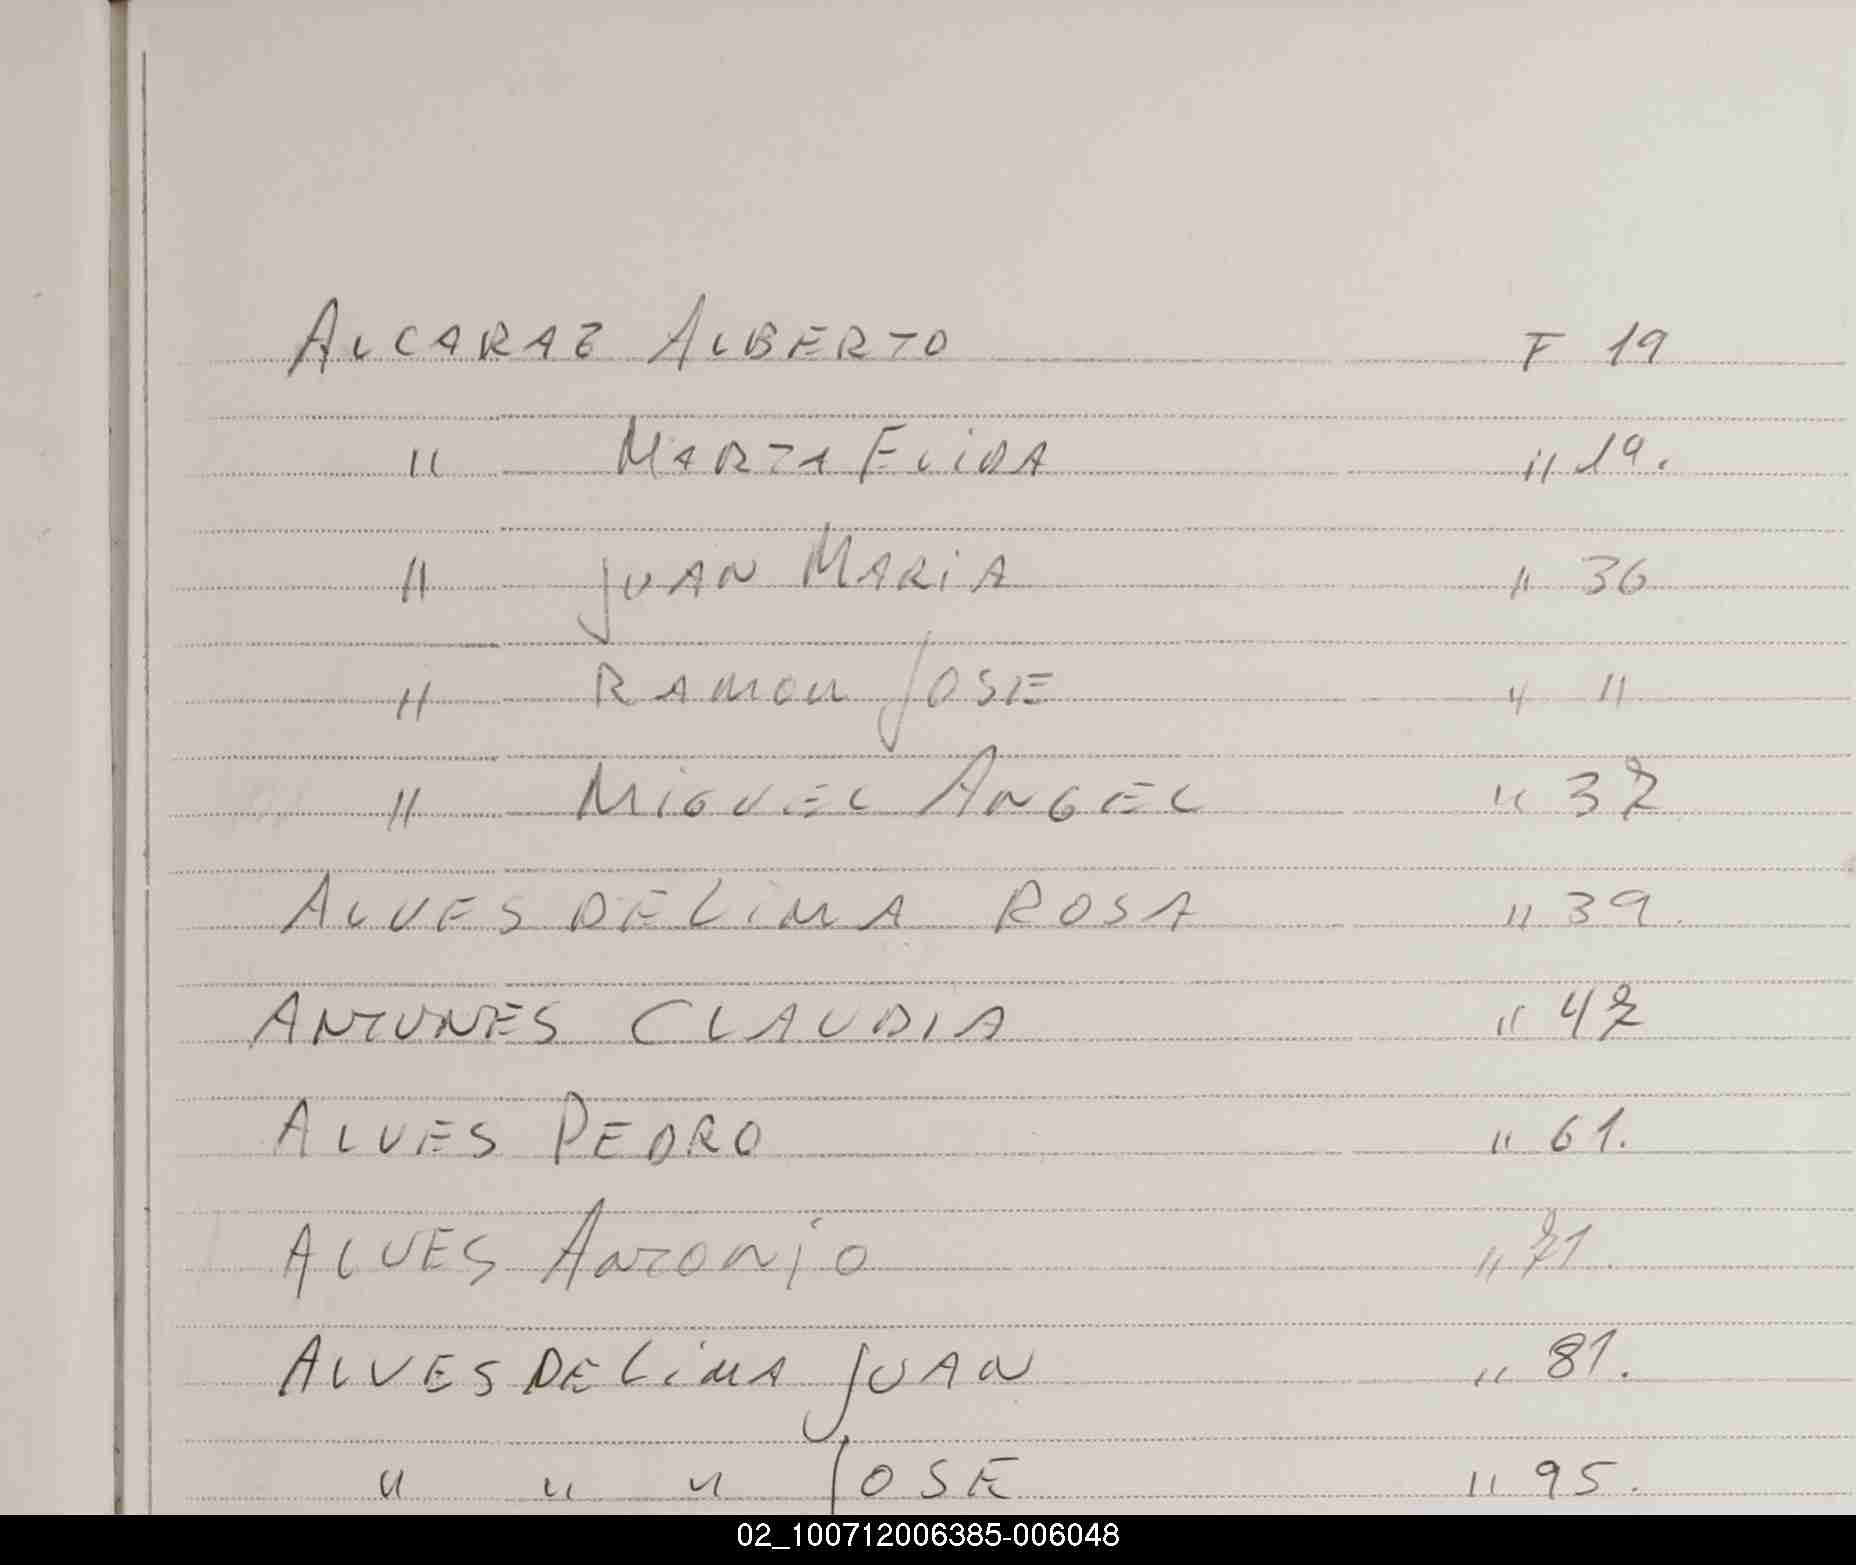 ALCARAZ ALBERTO F 19
" MARTA ELIDA " 19.
" JUAN MARiA " 36
" RAMON JOSE " "
" MiGUEL ANGEL " 37
ALVES DE LiMA ROSA " 39.
ANTUNES CLAUDIA " 47
ALVES PEDRO " 61.
ALVES ANTONiO " 71.
ALVES DE LiMA JUAN " 81.
" " " JOSE " 95.
02_100712006385-006048